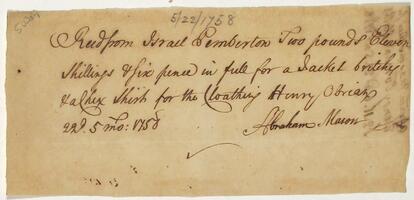 5/22/1758
Recd from Israel Pemberton Two pounds Eleven
Shillings & Six pence in full for a Jacket britches
& a Chex Shirt for the Cloathing Henry Obrian
22d. 5 mo: 1758
Abraham Mason